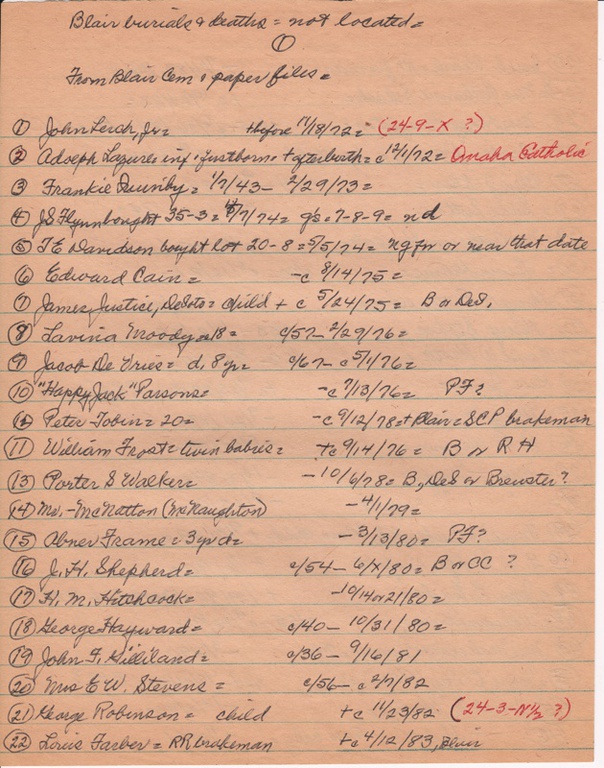 Blair burials & deaths = not located =
①
From Blair Cem & paper files =
① John Lerch, Jr. = + before 11/18/72 = (24-9-X ?)
② Adolph Lazures inf. + justborn + afterbirth = c 12/1/72 = Omaha Catholic
③ Frankie Quinby = 1/7/43 - 2/29/73 =
④ JS Flynn bought 35-3 = 7/74 = g's = 7-8-9 = nd
⑤ T E Davidson bought lot 20-8 = 5/5/74 = ng for or near that date
⑥ Edward Cain = - c 8/14/75 =
⑦ James Justice, DeSoto = child + c 5/24/75 = B or DeS.
⑧ Lavina Moody = 18 = c/57 - 2/29/76 =
⑨ Jacob De Vries = d, 8 yr = c/67 - c 5/1/76 =
⑩ "Happy Jack" Parsons = - c 7/13/76 = PF?
Peter Tobin = 20 = - c 9/12/78 = + Blair = SCP brakeman
⑪ William Frost = twin babies = + c 9/14/76 = B or RH
⑬ Porter S Walker = - 10/6/78 = B, DeS or Brewster?
⑭ Mr. - McNatton (McNaughton) - 4/1/79 =
⑮ Abner Frame = 3 yr d = - 3/13/80 = PF?
⑯ J. H. Shepherd = c/54 - 6/X/80 = B or CC ?
⑰ H. M. Hitchcock = - 10/14 or 21/80 =
⑱ George Hayward = c/40 - 10/31/80 =
⑲ John F. Gilliland = c/36 - 9/16/81
⑳ Mrs E W. Stevens = c/56 - c 2/7/82
㉑ George Robinson = child + c 11/23/82 (24-3-N½ ?)
㉒ Louis Farber = RR brakeman + c 4/12/83, Blair